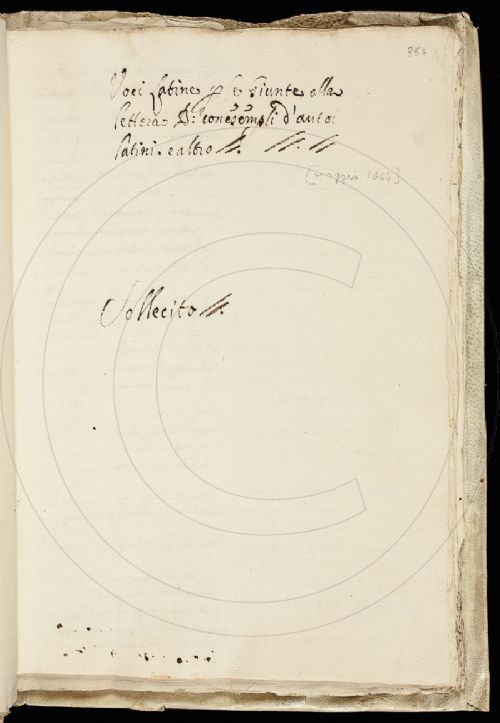 364
Voci Latine p le Giunte alla
Lettera D: con esempli d'autoi
Latini. e altro //. //. //
[maggio 1664]
Sollecito //.